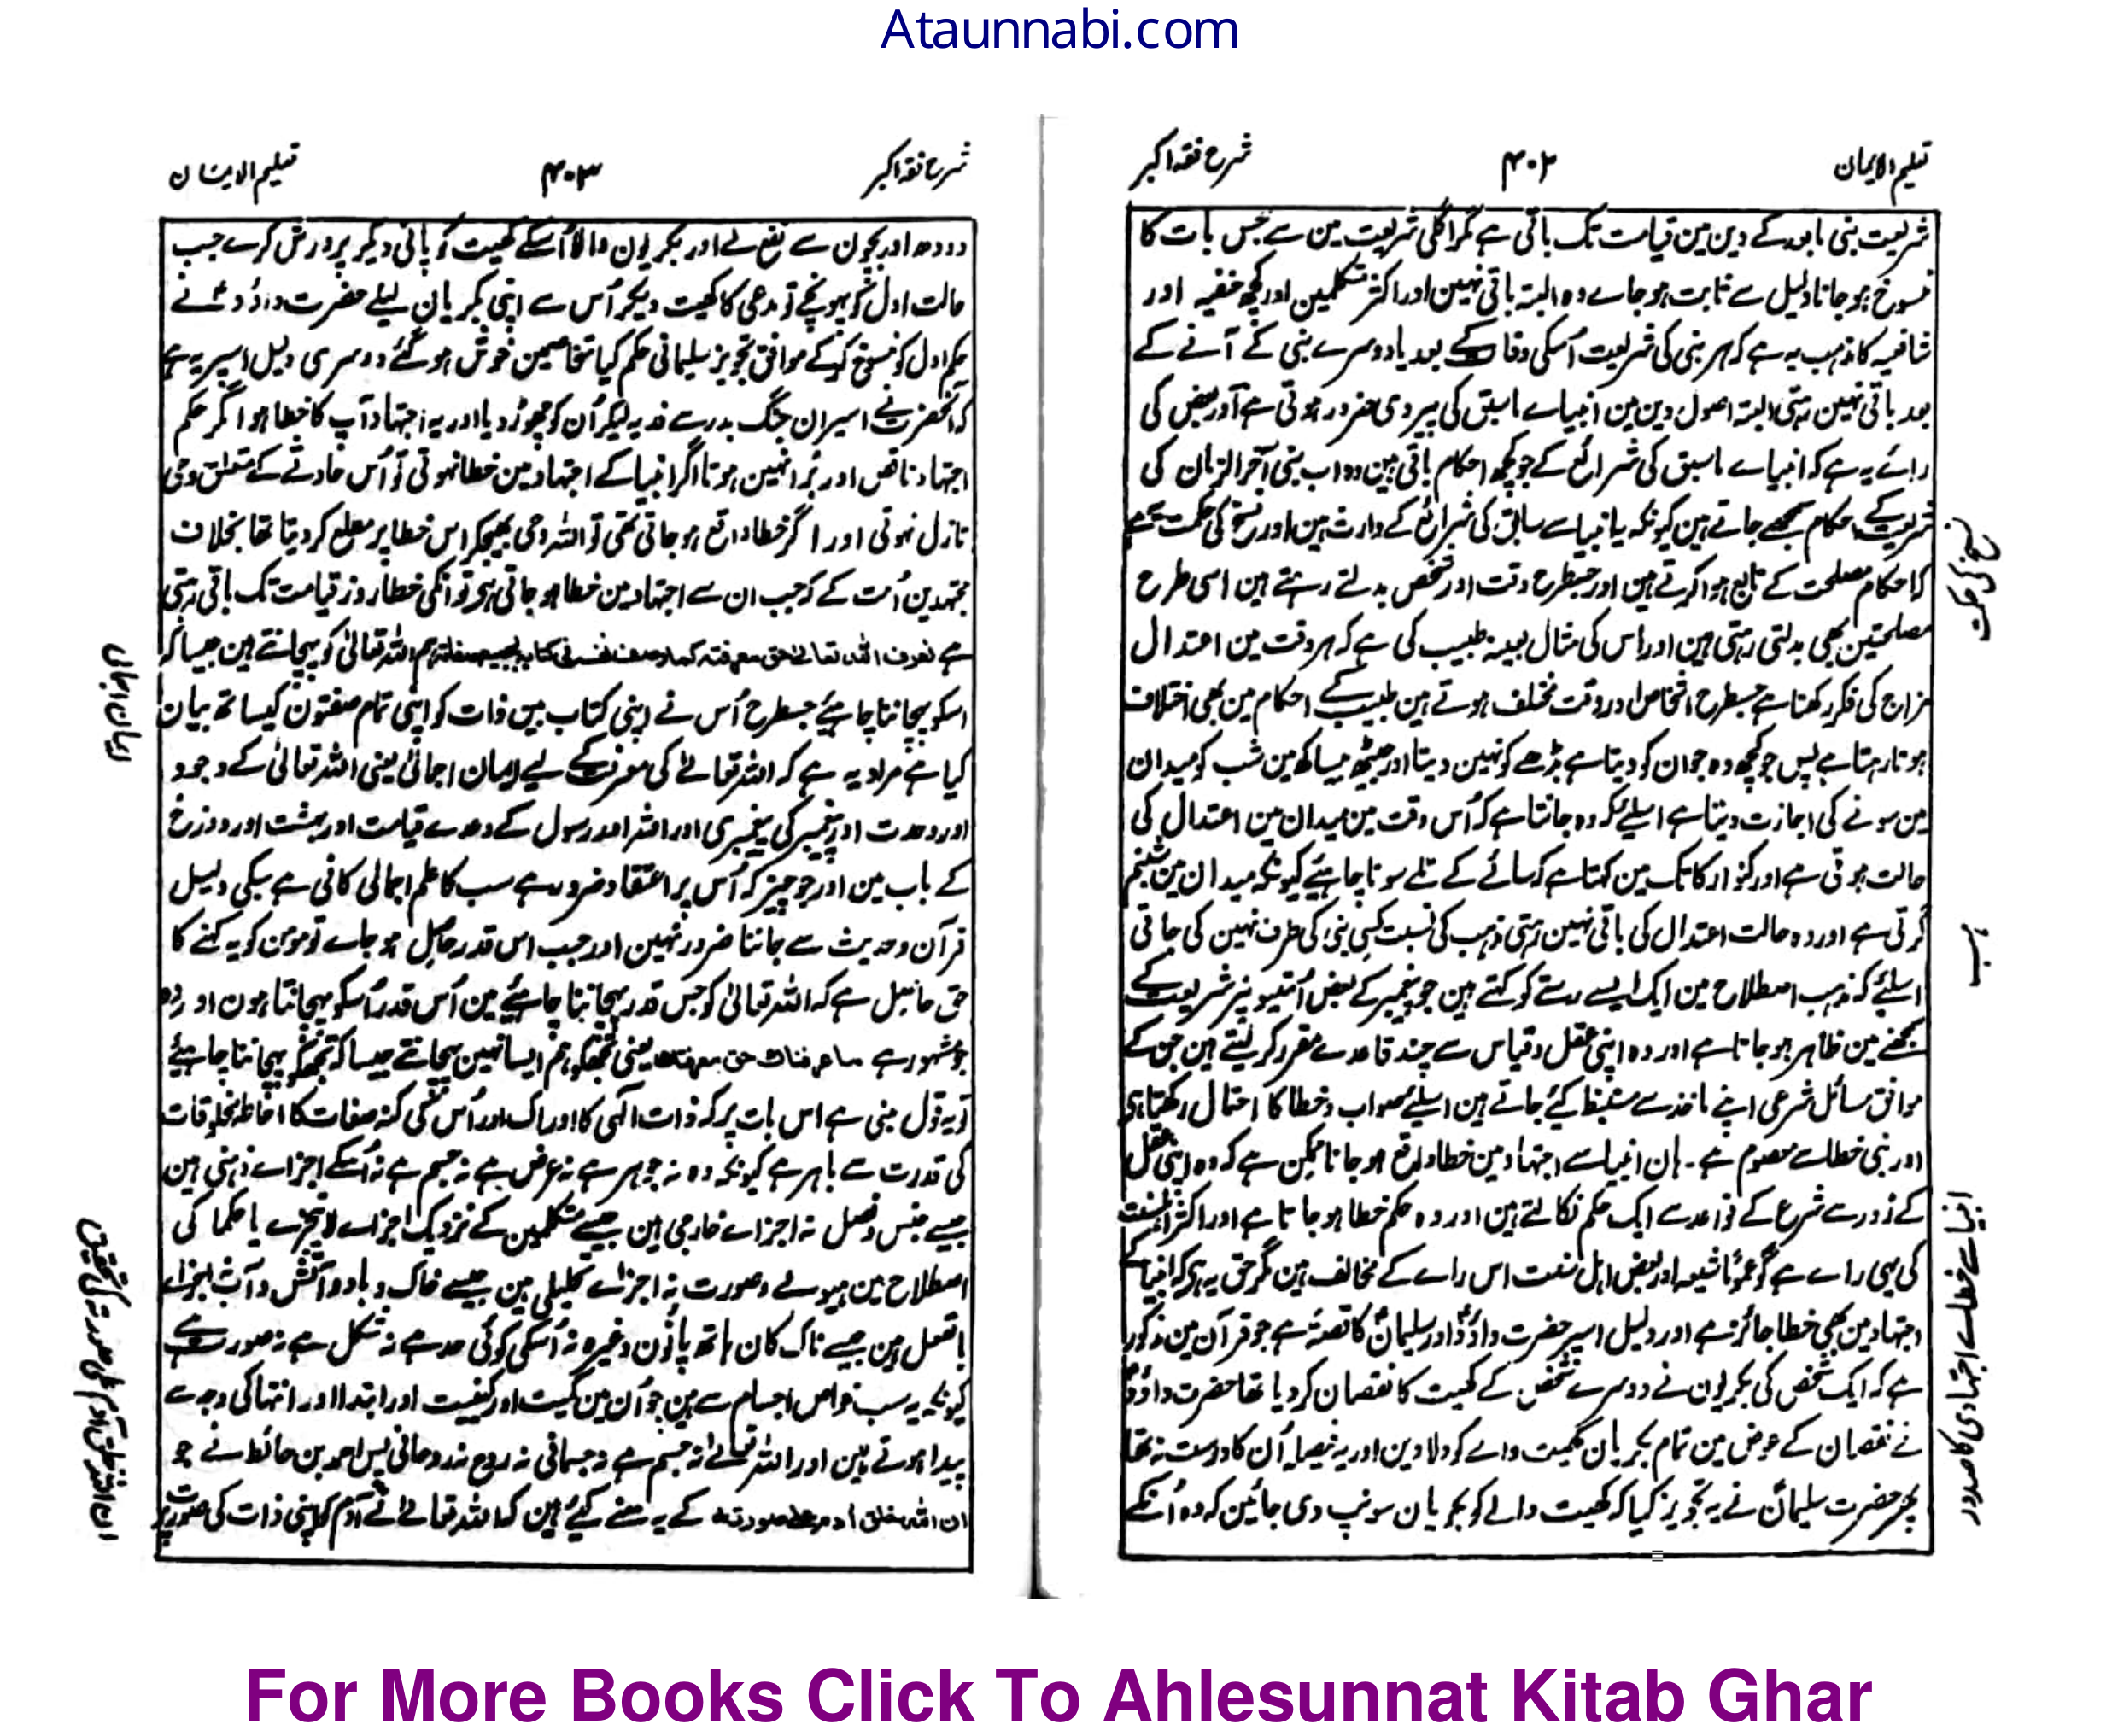 Ataunnabi.com
تعلیم الایمان ۴۰۲ شرح فقہ اکبر
شریعت بنی مابعد کے دین مین قیامت تک باقی ہے مگر اگلی شریعت مین سے جس بات کا
منسوخ ہوجانا دلیل سے ثابت ہوجاے وہ البتہ باقی نہین اور اکثر متکلمین اور کچھ حنفیہ اور
شافعیہ کا مذہب یہ ہے کہ ہر بنی کی شریعت اُسکی وفات کے بعد یا دوسرے بنی کے آنے کے
بعد باقی نہین رہتی البتہ اصول دین مین انبیاے اسبق کی پیروی ضرور ہوتی ہے اور بعض کی
راے یہ ہے کہ انبیاے اسبق کی شرائع کے جو کچھ احکام باقی ہین وہ اب بنی آخر الزمان کی
شریعت کے احکام سمجھے جاتے ہین کیونکہ یہ انبیاے سابق کی شرائع کے وارث ہین اور نسخ کی حکمت یہ ہے
کہ احکام مصلحت کے تابع ہوا کرتے ہین اور جسطرح وقت اور شخص بدلتے رہتے ہین اسی طرح
مصلحتین بھی بدلتی رہتی ہین اور اس کی مثال بعینہ طبیب کی ہے کہ ہر وقت مین اعتدال
مزاج کی فکر رکھتا ہے جسطرح اشخاص اور وقت مختلف ہوتے ہین طبیب کے احکام مین بھی اختلاف
ہوتا رہتا ہے پس جو کچھ وہ جوان کو دیتا ہے بڈھے کو نہین دیتا اور جیٹھ بیساکھ مین شب کو میدان
مین سونے کی اجازت دیتا ہے اسلئے کہ وہ جانتا ہے کہ اُس وقت مین میدان مین اعتدال کی
حالت ہوتی ہے اور کنوار کاتک مین کہتا ہے کہ سائے کے تلے سونا چاہیئے کیونکہ میدان مین شبنم
گرتی ہے اور وہ حالت اعتدال کی باقی نہین رہتی مذہب کی نسبت کسی بنی کی طرف نہین کی جاتی
اسلئے کہ مذہب اصطلاح مین ایک ایسے رستے کو کہتے ہین جو پیغمبر کے بعض اُمتیو نپر شریعت کے
سمجھنے مین ظاہر ہوجاتا ہے اور وہ اپنی عقل و قیاس سے چند قاعدے مقرر کرلیتے ہین جن کے
موافق مسائل شرعی اپنے ماخذ سے مستنبط کیئے جاتے ہین اسلئے صواب و خطا کا احتمال رکھتا ہے
اور بنی خطا سے معصوم ہے۔ ہان انبیا سے اجتہاد مین خطا واقع ہوجانا ممکن ہے کہ وہ اپنی عقل
کے زور سے شرع کے قواعد سے ایک حکم نکالتے ہین اور وہ حکم خطا ہوجاتا ہے اور اکثر اہلسنت
کی یہی راے ہے گو عموماً شیعہ اور بعض اہل سنت اس راے کے مخالف ہین مگر حق یہ ہے کہ انبیا کے
اجتہاد مین بھی خطا جائز ہے اور دلیل اسپر حضرت داؤدؑ اور سلیمانؑ کا قصہ ہے جو قرآن مین مذکور
ہے کہ ایک شخص کی بکریون نے دوسرے شخص کے کھیت کا نقصان کردیا تھا حضرت داؤدؑ
نے نقصان کے عوض مین تمام بکریان کھیت والے کو دلادین اور یہ فیصلہ اُن کا درست نہ تھا
پھر حضرت سلیمانؑ نے یہ تجویز کیا کہ کھیت والے کو بکریان سونپ دی جائین کہ وہ اُنکے
نسخ کی حکمت
مذہب
انبیا سے خطاے اجتہادی کا صدور
شرح فقہ اکبر ۴۰۳ تعلیم الایمان
دودھ اور بچون سے نفع لے اور بکریون والا اُسکے کھیت کو پانی دیکر پرورش کرے جب
حالت اول کو پہونچے تو مدعی کا کھیت دیکر اُس سے اپنی بکریان لیلے حضرت داؤدؑ نے
حکم اول کو منسوخ کرکے موافق تجویز سلیمانی حکم کیا متخاصمین خوش ہوگئے دوسری دلیل اسپر یہ ہے
کہ آنحضرتؐ نے اسیران جنگ بدر سے فدیہ لیکر اُن کو چھوڑدیا اور یہ اجتہاد آپ کا خطا ہوا اگر حکم
اجتہاد ناقص اور بُرا نہین ہوتا اگر انبیا کے اجتہاد مین خطا نہوتی تو اُس حادثے کے متعلق وحی
نازل نہوتی اور اگر خطا واقع ہوجاتی تھی تو اللہ وحی بھیجکر اس خطا پر مطلع کردیتا تھا بخلاف
مجتہدین اُمت کے کہ جب ان سے اجتہاد مین خطا ہوجاتی ہے تو انکی خطا روز قیامت تک باقی رہتی
ہے نعرف اللہ تعالی حق معرفتہ کما وصف نفسہ فی کتابہ بجمیع صفاتہ ہم اللہ تعالی کو پہچانتے ہین جیسا کہ
اسکو پہچاننا چاہیئے جسطرح اُس نے اپنی کتاب مین ذات کو اپنی تمام صفتون کیساتھ بیان
کیا ہے مراد یہ ہے کہ اللہ تعالے کی معرفت کے لیے ایمان اجمالی یعنی اللہ تعالی کے وجود
اور وحدت اور پیغمبر کی پیغمبری اور اللہ اور رسول کے وعدے قیامت اور بہشت اور دوزخ
کے باب مین اور جو چیز کہ اُس پر اعتقاد ضرور ہے سب کا علم اجمالی کافی ہے سبکی دلیل
قرآن و حدیث سے جاننا ضرور نہین اور جب اس قدر حاصل ہوجاے تو مومن کو یہ کہنے کا
حق حاصل ہے کہ اللہ تعالی کو جس قدر پہچاننا چاہیئے مین اُس قدر اُسکو پہچانتا ہون اور وہ
جو مشہور ہے ما عرفناک حق معرفتک یعنی تجھکو ہم ایسا نہین پہچانتے جیسا کہ تجھکو پہچاننا چاہیئے
تو یہ قول مبنی ہے اس بات پر کہ ذات الہی کا ادراک اور اُس کی کنہ صفات کا احاطہ مخلوقات
کی قدرت سے باہر ہے کیونکہ وہ نہ جوہر ہے نہ عرض ہے نہ جسم ہے نہ اُسکے اجزاے ذہنی ہین
جیسے جنس و فصل نہ اجزاے خارجی ہین جیسے متکلمین کے نزدیک اجزاے لایتجزے یا حکما کی
اصطلاح مین ہیولے و صورت نہ اجزاے تحلیلی ہین جیسے خاک و باد و آتش و آب نہ اجزاے
بالفعل ہین جیسے ناک کان ہاتھ پاؤن وغیرہ نہ اُسکی کوئی حد ہے نہ شکل ہے نہ صورت ہے
کیونکہ یہ سب خواص اجسام سے ہین جو اُن مین کمیت اور کیفیت اور ابتدا اور انتہا کی وجہ سے
پیدا ہوتے ہین اور اللہ تعالے نہ جسم ہے نہ جسمانی نہ روح نہ روحانی پس احمد بن حائط نے جو
ان اللہ خلق آدم علی صورتہ کے یہ معنے کیئے ہین کہ اللہ تعالے نے آدم کو اپنی ذات کی صورت پر
ایمان اجمالی
ان اللہ خلق آدم علی صورتہ کی تحقیق
For More Books Click To Ahlesunnat Kitab Ghar